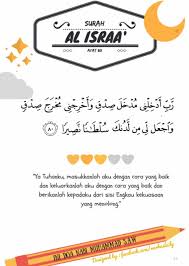 SURAH
AL ISRAA'
AYAT 80
رَّبِّ أَدْخِلْنِي مُدْخَلَ صِدْقٍ وَأَخْرِجْنِي مُخْرَجَ صِدْقٍ
وَاجْعَل لِّي مِن لَّدُنكَ سُلْطَانًا نَّصِيرًا ٨٠
"Ya Tuhanku, masukkanlah aku dengan cara yang baik
dan keluarkanlah aku dengan cara yang baik dan
berikanlah kepadaku dari sisi Engkau kekuasaan
yang menolong."
DU DUA NABI MUHAMMAD SAW
Designed by : facebook.com/